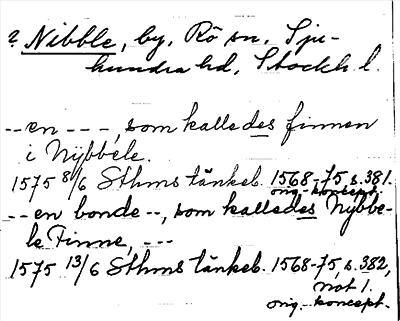 ? Nibble, by, Rö sn, Sju-
hundra hd, Stockh. l.
--en ---, som kallades finnen
i Nÿbbele.
1575 8/6 Sthms tänkeb. 1568-75, s. 381.
orig.-koncept.
--en bonde --, som kallades Nÿbbe-
le Finne, ---
1575 13/6 Sthms tänkeb. 1568-75, s. 382,
not 1.
orig.-koncept.